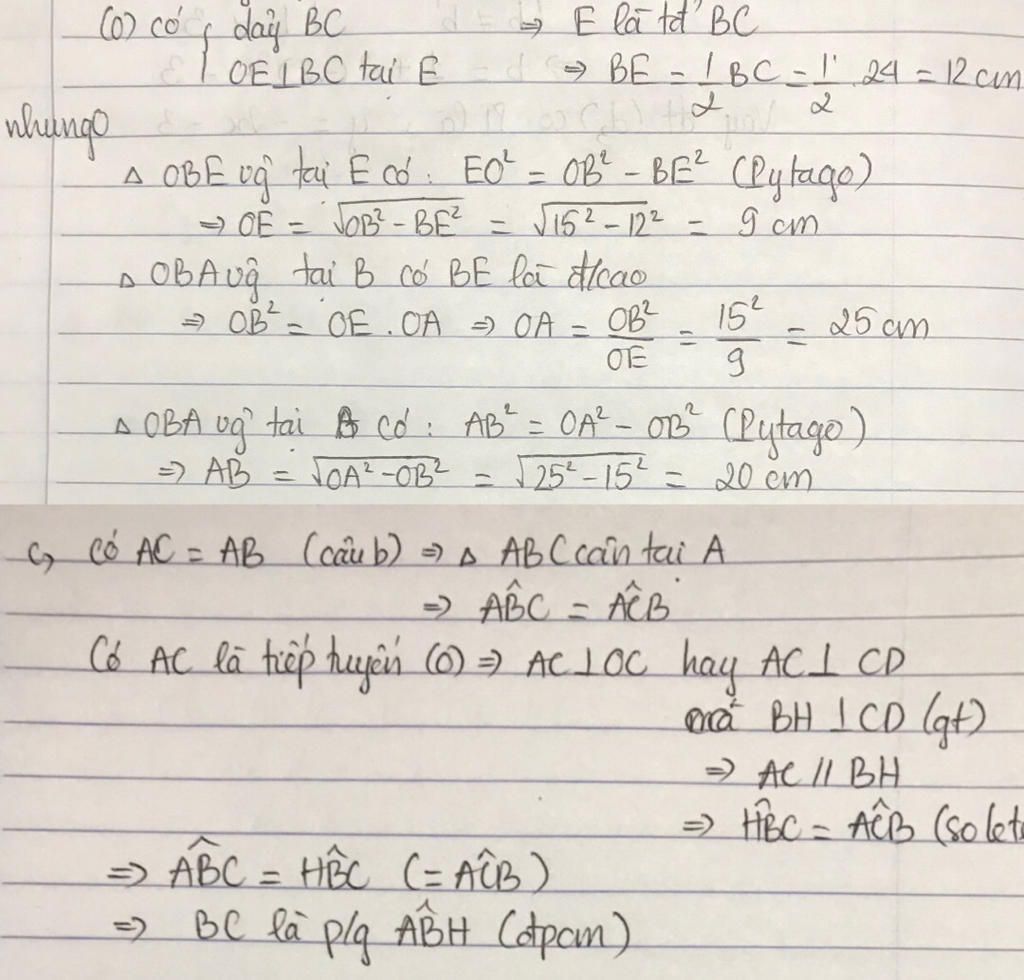 (O) có { dây BC ⇒ E là tđ BC
OE⊥BC tại E ⇒ BE = 1/2 BC = 1/2 . 24 = 12 cm
nhungo
△ OBE vg tại E có : EO² = OB² - BE² (Pytago)
⇒ OE = √OB² - BE² = √15² - 12² = 9 cm
△ OBA vg tại B có BE là đ/cao
⇒ OB² = OE . OA ⇒ OA = OB²/OE = 15²/9 = 25 cm
△ OBA vg tại B có : AB² = OA² - OB² (Pytago)
⇒ AB = √OA² - OB² = √25² - 15² = 20 cm
c, Có AC = AB (câu b) ⇒ △ ABC cân tại A
⇒ AB̂C = AĈB
Có AC là tiếp tuyến (O) ⇒ AC⊥OC hay AC⊥ CD
mà BH ⊥ CD (gt)
⇒ AC // BH
⇒ HB̂C = AĈB (so le
⇒ AB̂C = HB̂C (= AĈB)
⇒ BC là p/g AB̂H (đpcm)